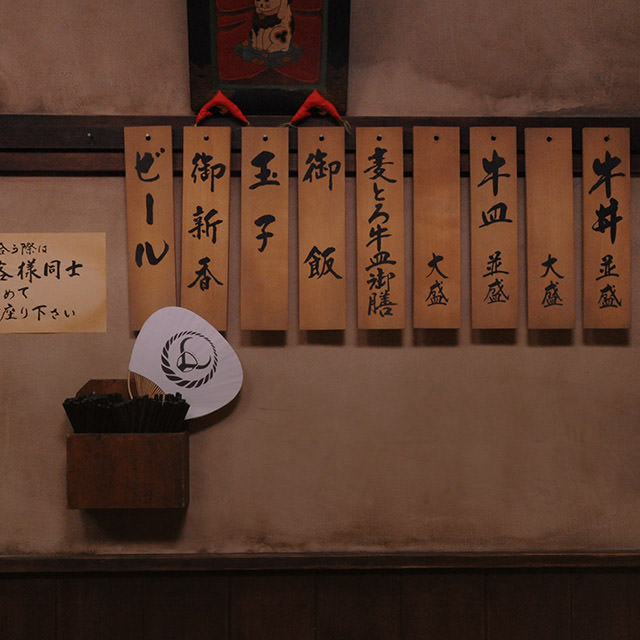 牛丼 並盛
大盛
牛皿 並盛
大盛
麦とろ牛皿御膳
御飯
玉子
御新香
ビール
合う際は
客様同士
めて
座り下さい